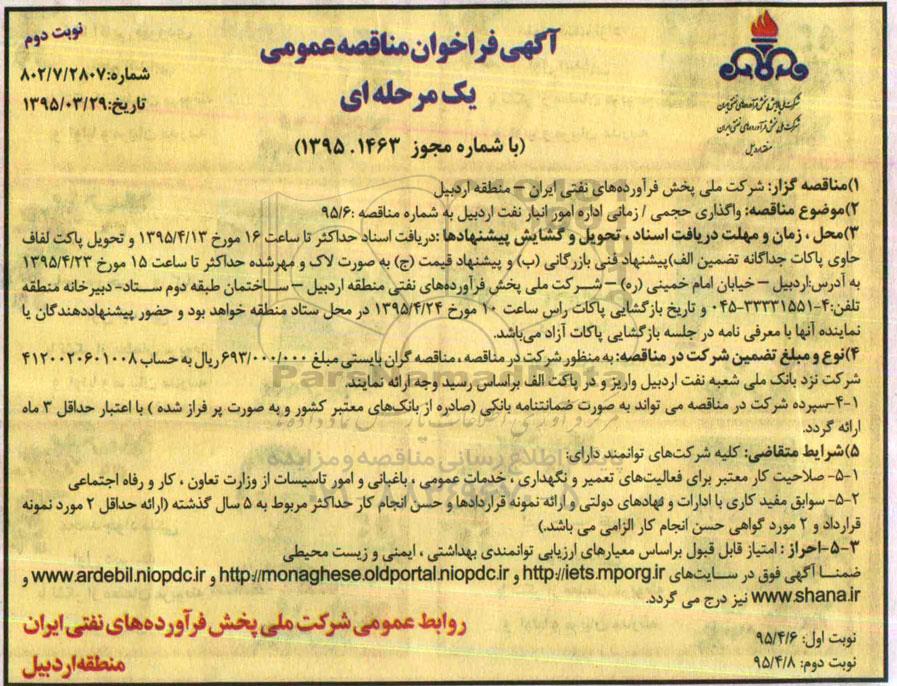 آگهی فراخوان مناقصه عمومی
یک مرحله ای
(با شماره مجوز ۱۴۶۳. ۱۳۹۵)
نوبت دوم
شماره:۸۰۲/۷/۲۸۰۷
تاریخ:۱۳۹۵/۰۳/۲۹
شرکت ملی پالایش و پخش فرآورده‌های نفتی ایران
شرکت ملی پخش فرآورده‌های نفتی ایران
منطقه اردبیل
۱)مناقصه گزار: شرکت ملی پخش فرآورده‌های نفتی ایران – منطقه اردبیل
۲)موضوع مناقصه: واگذاری حجمی / زمانی اداره امور انبار نفت اردبیل به شماره مناقصه :۹۵/۶
۳)محل ، زمان و مهلت دریافت اسناد ، تحویل و گشایش پیشنهادها :دریافت اسناد حداکثر تا ساعت ۱۶ مورخ ۱۳۹۵/۴/۱۳ و تحویل پاکت لفاف
حاوی پاکات جداگانه تضمین الف)پیشنهاد فنی بازرگانی (ب) و پیشنهاد قیمت (ج) به صورت لاک و مهرشده حداکثر تا ساعت ۱۵ مورخ ۱۳۹۵/۴/۲۳
به آدرس:اردبیل – خیابان امام خمینی (ره) – شرکت ملی پخش فرآورده‌های نفتی منطقه اردبیل – ساختمان طبقه دوم ستاد- دبیرخانه منطقه
تلفن:۴-۳۳۳۳۱۵۵۱-۰۴۵ و تاریخ بازگشایی پاکات راس ساعت ۱۰ مورخ ۱۳۹۵/۴/۲۴ در محل ستاد منطقه خواهد بود و حضور پیشنهاددهندگان یا
نماینده آنها با معرفی نامه در جلسه بازگشایی پاکات آزاد می‌باشد.
۴)نوع و مبلغ تضمین شرکت در مناقصه: به منظور شرکت در مناقصه ، مناقصه گران بایستی مبلغ ۶۹۳/۰۰۰/۰۰۰ریال به حساب ۴۱۲۰۰۲۰۶۰۱۰۰۸
شرکت نزد بانک ملی شعبه نفت اردبیل واریز و در پاکت الف براساس رسید وجه ارائه نمایند.
۴-۱-سپرده شرکت در مناقصه می تواند به صورت ضمانتنامه بانکی (صادره از بانک‌های معتبر کشور و به صورت پر فراز شده ) با اعتبار حداقل ۳ ماه
ارائه گردد.
۵)شرایط متقاضی: کلیه شرکت‌های توانمند دارای:
۵-۱- صلاحیت کار معتبر برای فعالیت‌های تعمیر و نگهداری ، خدمات عمومی ، باغبانی و امور تاسیسات از وزارت تعاون ، کار و رفاه اجتماعی
۵-۲- سوابق مفید کاری با ادارات و نهادهای دولتی و ارائه نمونه قراردادها و حسن انجام کار حداکثر مربوط به ۵ سال گذشته (ارائه حداقل ۲ مورد نمونه
قرارداد و ۲ مورد گواهی حسن انجام کار الزامی می باشد.)
۵-۳-احراز : امتیاز قابل قبول براساس معیارهای ارزیابی توانمندی بهداشتی ، ایمنی و زیست محیطی
ضمنا آگهی فوق در سایت‌های http://iets.mporg.ir و http://monaghese.oldportal.niopdc.ir و www.ardebil.niopdc.ir و
www.shana.ir نیز درج می گردد.
نوبت اول: ۹۵/۴/۶
نوبت دوم: ۹۵/۴/۸
روابط عمومی شرکت ملی پخش فرآورده‌های نفتی ایران
منطقه اردبیل
ParsNamadData
پایگاه اطلاع رسانی مناقصه و مزایده